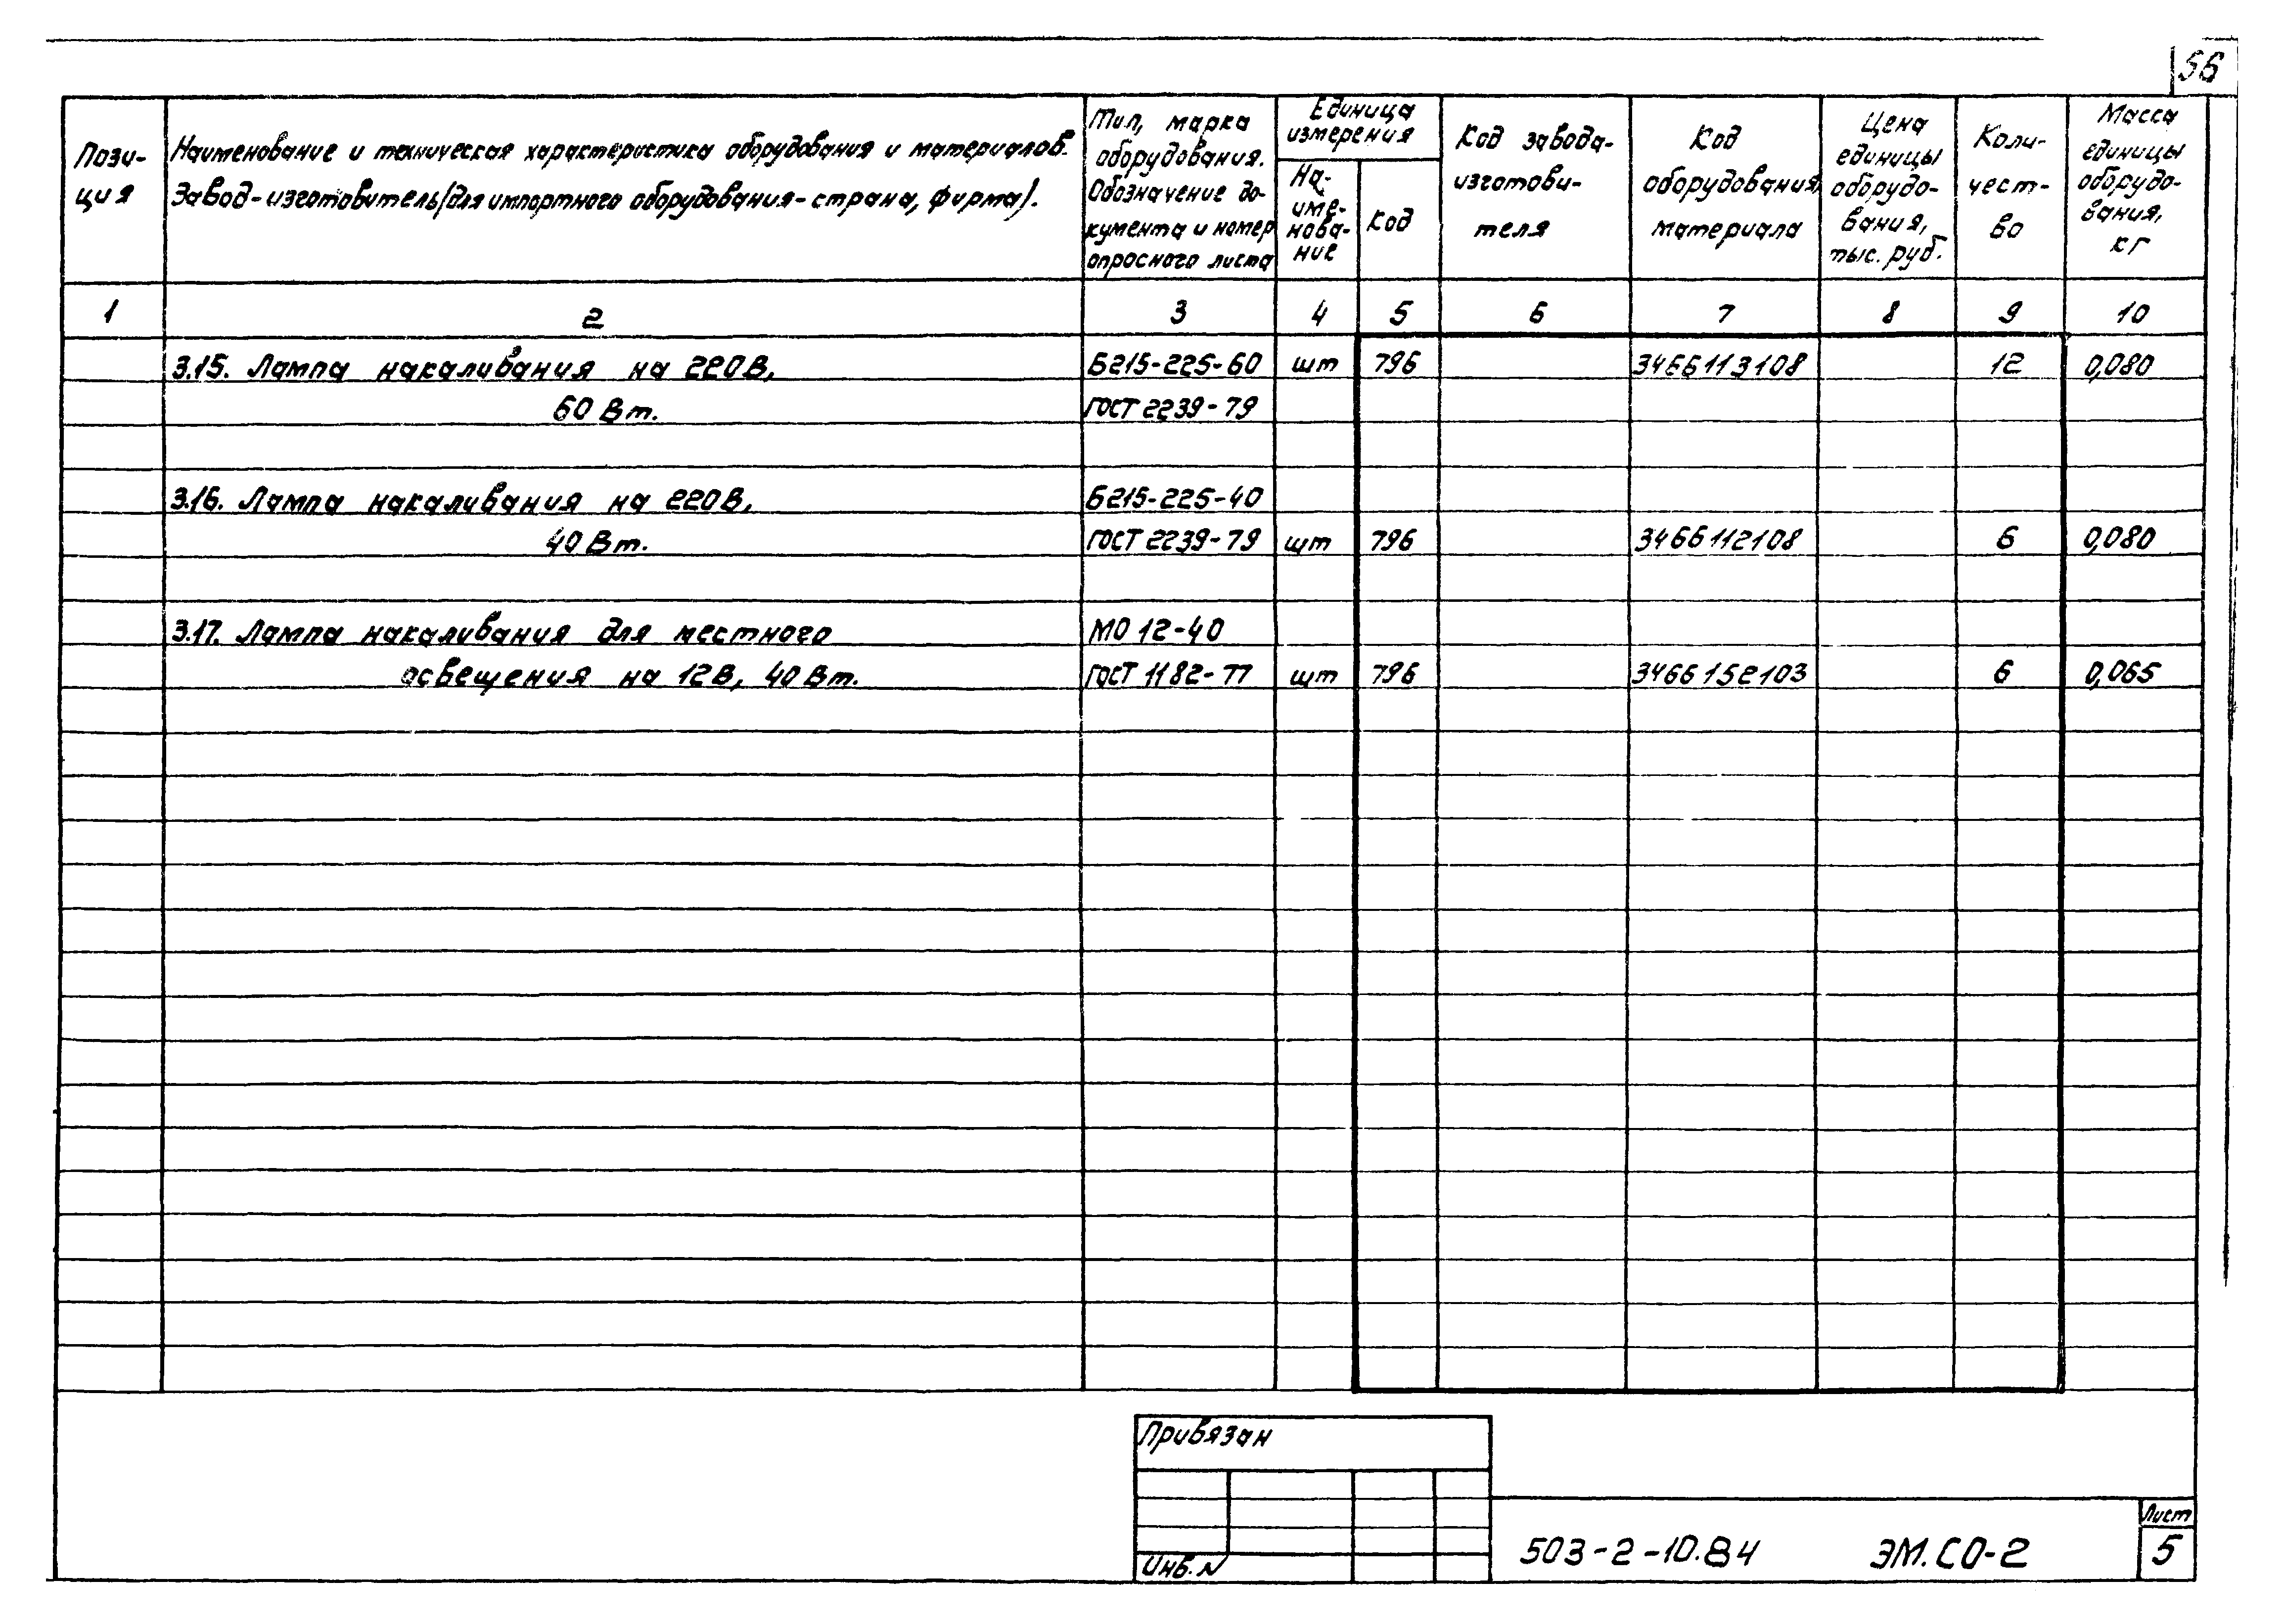 56
Пози-
ция
Наименование и техническая характеристика оборудования и материалов.
Завод-изготовитель (для импортного оборудования-страна, фирма).
Тип, марка
оборудования.
Обозначение до-
кумента и номер
опросного листа
Единица
измерения
На-
име-
нова-
ние
код
Код завода-
изготови-
теля
Код
оборудования,
материала
Цена
единицы
оборудо-
вания,
тыс. руб.
Коли-
чест-
во
Масса
единицы
оборудо-
вания,
кг
1 2 3 4 5 6 7 8 9 10
3.15. Лампа накаливания на 220В, Б215-225-60 шт 796 3466113108 12 0,080
60 Вт. ГОСТ 2239-79
3.16. Лампа накаливания на 220В, Б215-225-40
40 Вт. ГОСТ 2239-79 шт 796 3466112108 6 0,080
3.17. Лампа накаливания для местного МО 12-40
освещения на 12В, 40 Вт. ГОСТ 1182-77 шт 796 3466152103 6 0,065
Привязан
Инв. N
503-2-10.84 ЭМ.СО-2
Лист
5